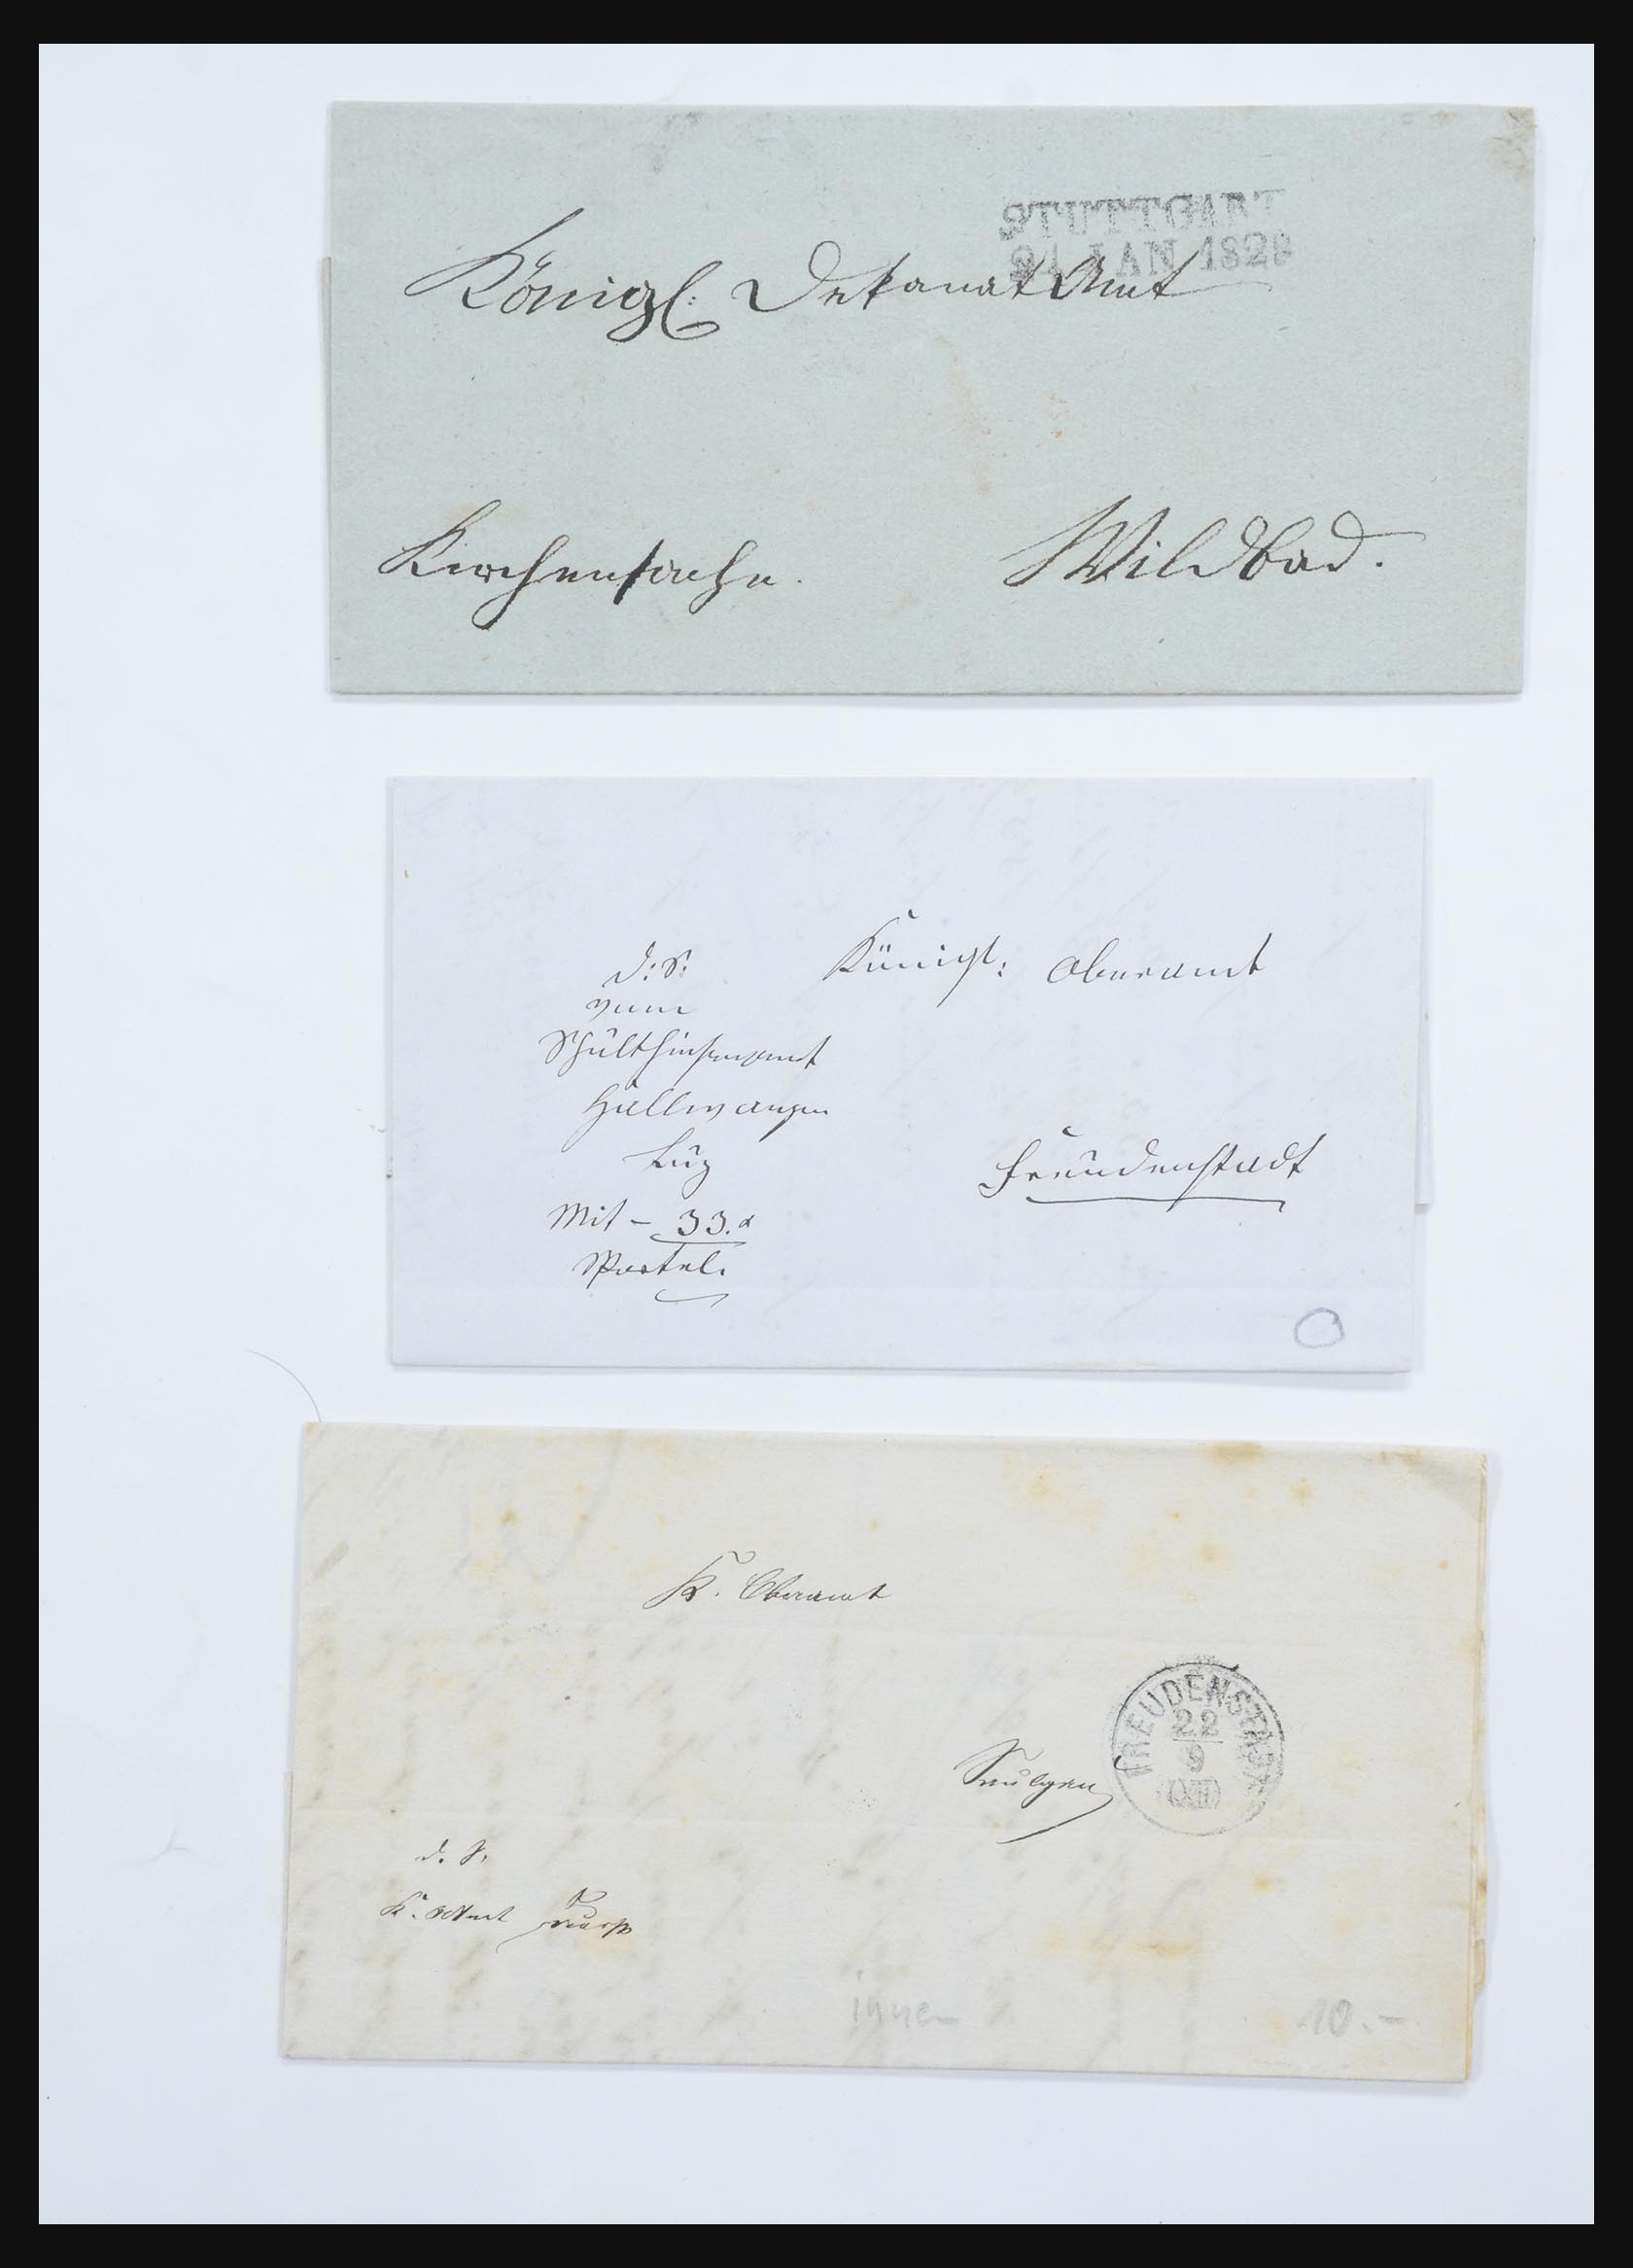 STUTTGART
24 JAN 1828
Königl: Dekanat Amt
Kirchensache.
Wildbad.
d: S:
vom
Schultheisenamt
Hallwangen
Luz
Mit - 33. x
Sportel.
Königl: Oberamt
Freudenstadt
K. Oberamt
FREUDENSTADT
22
9
Saulgau
d. S.
K. OAmt
innen
10.-